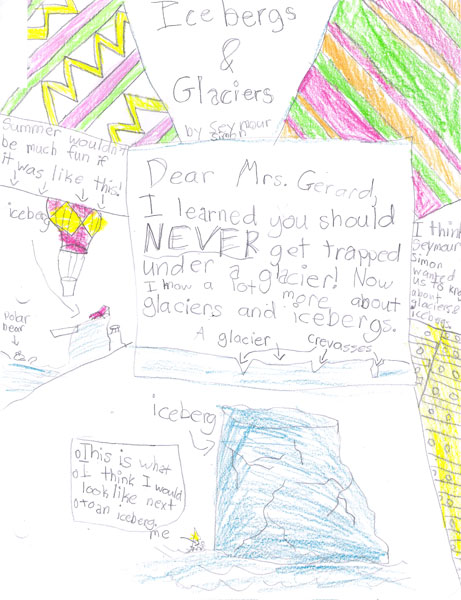 Icebergs
&
Glaciers
by Seymour
Simon
Summer wouldn't
be much fun if
it was like this!
iceberg
polar
bear
Dear Mrs. Gerard,
I learned you should
NEVER get trapped
under a glacier! Now
I know a lot more about
glaciers and icebergs.
A glacier
crevasses
I think
Seymour
Simon
wanted
us to know
about
glaciers &
icebergs.
iceberg
This is what
I think I would
look like next
to an iceberg.
me